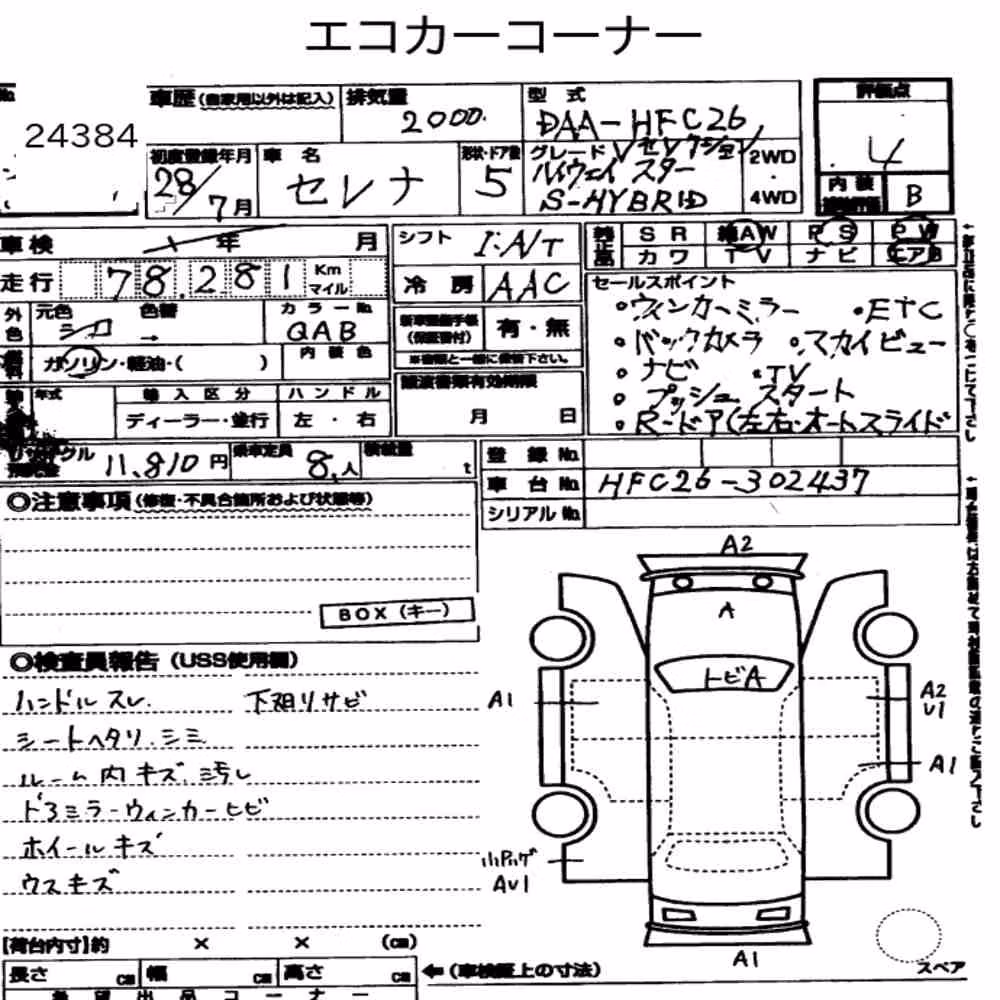 エコカーコーナー
車歴 (自家用以外は記入) 排気量 型式 評価点
24384 2000. DAA-HFC26 4
初度登録年月 車名 形状・ドア数 グレード Vセレクション 2WD
28/7月 セレナ 5 ハイウェイスター ・
S-HYBRID 4WD 内装 B
車検 年 月 シフト I・A/T 純正 SR AW PS PW
走行 78.281 Km マイル 冷房 AAC カワ TV ナビ エアB
外色 元色 色替 カラーNo. セールスポイント
シロ → QAB 新車整備手帳 (保証書付) 有・無 •ウィンカーミラー •ETC
燃料 ガソリン・軽油・( ) 内装色 ※書類と一緒に提出下さい。 •バックカメラ •スカイビュー
•ナビ •TV
年式 輸入区分 ハンドル 譲渡書類有効期限 •プッシュスタート
ディーラー・並行 左・右 月 日 •Rードア(左右・オートスライド
リサイクル預託金 11,810円 乗車定員 8人 積載量 t 登録No.
車台No. HFC26-302437
◎注意事項(修復・不具合箇所および状態等) シリアルNo.
A2
BOX (キー) A
◎検査員報告 (USS使用欄)
トビA
ハンドルスレ 下廻りサビ A1 A2
U1
シートヘタリ.シミ
ルーム内キズ.汚レ A1
ドアミラーウィンカーヒビ
ホイールキズ 小Pハゲ
ウスキズ AU1
【荷台内寸】約 × × (cm) A1
長さ cm 幅 cm 高さ cm ←(車検証上の寸法) スペア
希望出品コーナー